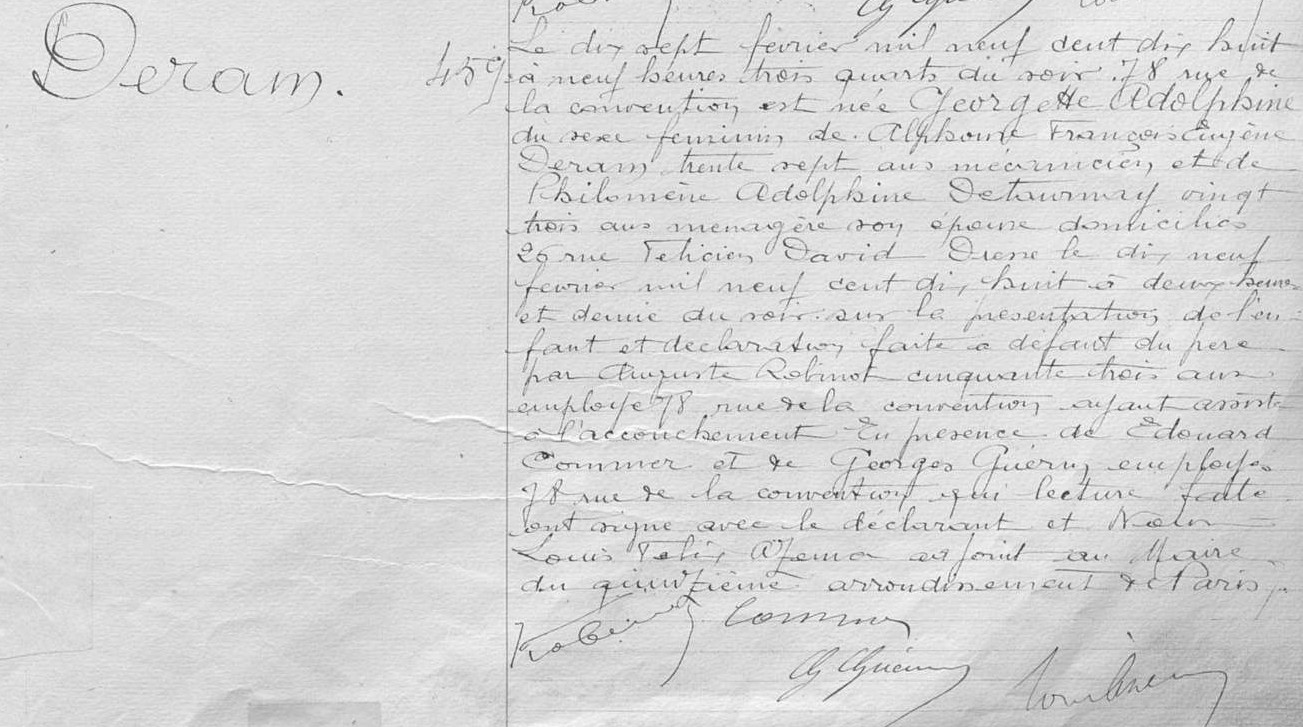 Deram. 459
Le dix sept février mil neuf cent dix huit
à neuf heures trois quarts du soir. 78 rue de
la convention est née Georgette Adolphine
du sexe feminin de Alphonse François Eugène
Deram trente sept ans mécanicien et de
Philomène Adolphine Detournay vingt
trois ans menagère son épouse domiciliés
26 rue Felicien David Dressé le dix neuf
fevrier mil neuf cent dix huit à deux heures
et demie du soir sur la présentation de l'en
fant et declaration faite a défaut du père
par Auguste Robinot cinquante trois ans
employé 78 rue de la convention ayant assisté
à l'accouchement En presence de Edouard
Commer et de Georges Guérin employés
78 rue de la convention qui lecture faite
ont signé avec le déclarant et Nous
Louis Felix Azema adjoint au Maire
du quinzième arrondissement de Paris
Robinot Commer
G Guérin